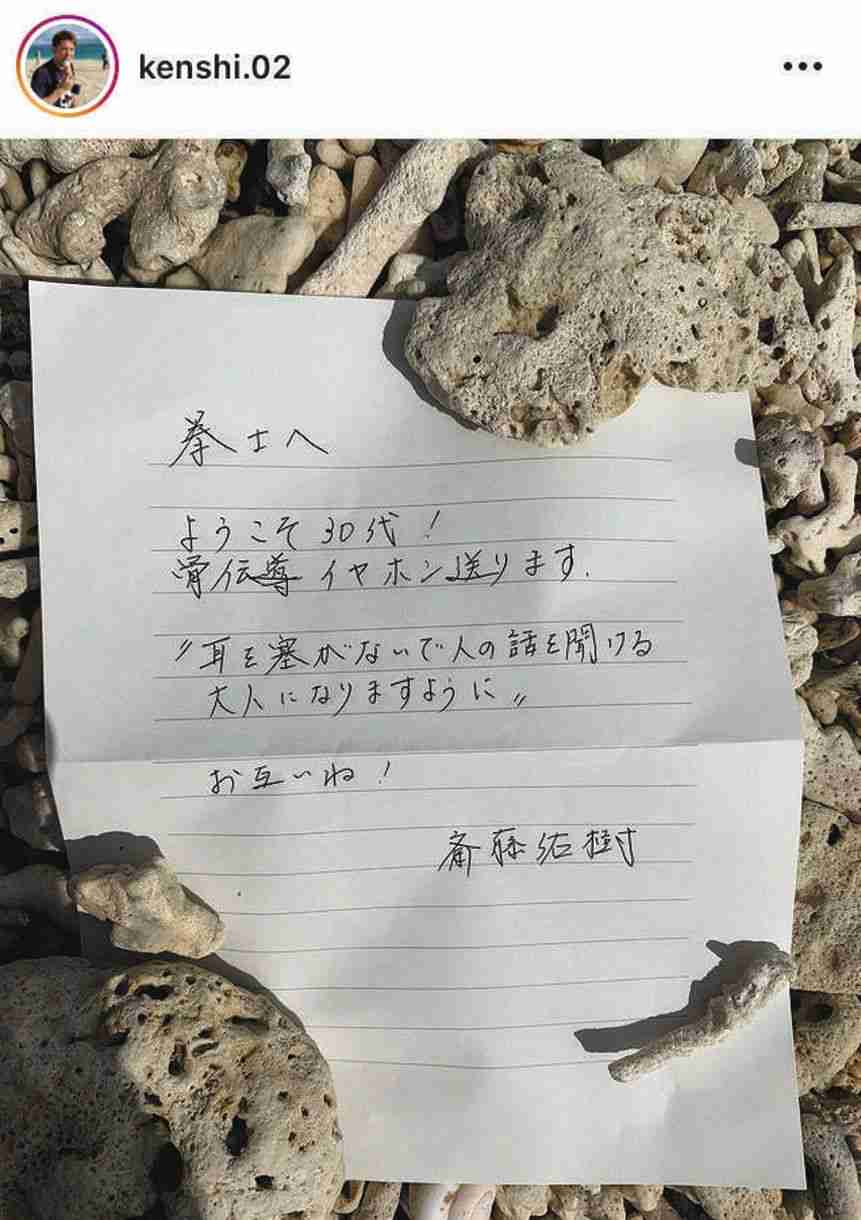 kenshi.02
拳士へ
ようこそ30代!
骨伝導イヤホン送ります.
〃耳を塞がないで人の話を聞ける
大人になりますように〃
お互いね!
斎藤佑樹